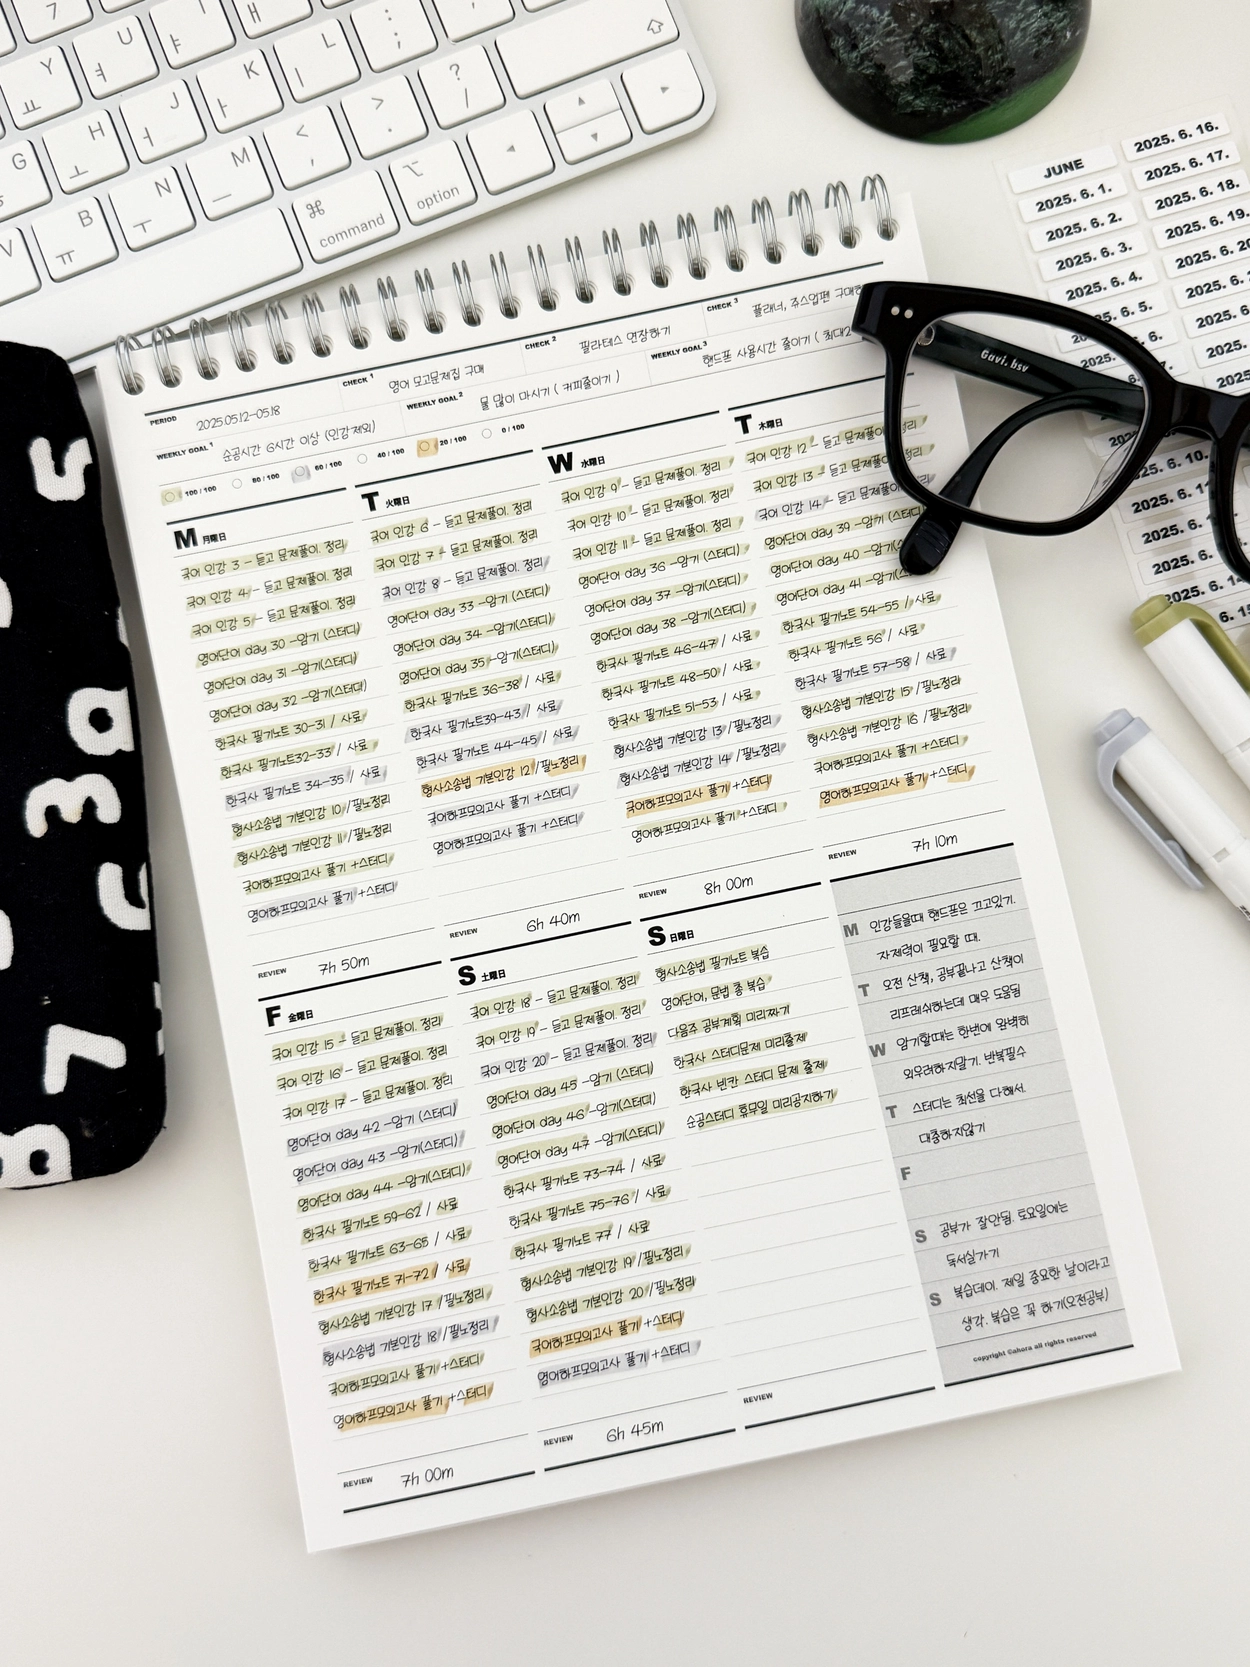 7
Y
ㅛ
U
ㅕ
I
ㅑ
G
H
ㅗ
J
ㅓ
K
ㅏ
L
ㅣ
:
;
V
B
ㅠ
N
ㅜ
M
ㅡ
<
,
>
.
?
/
⌘
command
⌥
option
JUNE
2025. 6. 1.
2025. 6. 2.
2025. 6. 3.
2025. 6. 4.
2025. 6. 16.
2025. 6. 17.
2025. 6. 18.
2025. 6. 19.
Gavi. bsv
PERIOD 2025.05.12-05.18
CHECK 1 영어 모고문제집 구매
CHECK 2 필라테스 연장하기
CHECK 3 플래너, 쥬스업펜
WEEKLY GOAL 1 순공시간 6시간 이상 (인강제외)
WEEKLY GOAL 2 물 많이 마시기 ( 커피줄이기 )
WEEKLY GOAL 3 핸드폰 사용시간 줄이기 (
100 / 100 80 / 100 60 / 100 40 / 100 20 / 100 0 / 100
M 月曜日
국어 인강 3 - 듣고 문제풀이. 정리
국어 인강 4 - 듣고 문제풀이. 정리
국어 인강 5 - 듣고 문제풀이. 정리
영어단어 day 30 -암기 (스터디)
영어단어 day 31 -암기(스터디)
영어단어 day 32 -암기(스터디)
한국사 필기노트 30-31 / 사료
한국사 필기노트32-33 / 사료
한국사 필기노트 34-35 / 사료
형사소송법 기본인강 10 /필노정리
형사소송법 기본인강 11 /필노정리
국어하프모의고사 풀기 +스터디
영어하프모의고사 풀기 +스터디
REVIEW 7h 50m
T 火曜日
국어 인강 6 - 듣고 문제풀이. 정리
국어 인강 7 - 듣고 문제풀이. 정리
국어 인강 8 - 듣고 문제풀이. 정리
영어단어 day 33 -암기 (스터디)
영어단어 day 34 -암기(스터디)
영어단어 day 35 -암기(스터디)
한국사 필기노트 36-38 / 사료
한국사 필기노트39-43 / 사료
한국사 필기노트 44-45 / 사료
형사소송법 기본인강 12 /필노정리
국어하프모의고사 풀기 +스터디
영어하프모의고사 풀기 +스터디
REVIEW 6h 40m
W 水曜日
국어 인강 9 - 듣고 문제풀이. 정리
국어 인강 10 - 듣고 문제풀이. 정리
국어 인강 11 - 듣고 문제풀이. 정리
영어단어 day 36 -암기 (스터디)
영어단어 day 37 -암기(스터디)
영어단어 day 38 -암기(스터디)
한국사 필기노트 46-47 / 사료
한국사 필기노트 48-50 / 사료
한국사 필기노트 51-53 / 사료
형사소송법 기본인강 13 /필노정리
형사소송법 기본인강 14 /필노정리
국어하프모의고사 풀기 +스터디
영어하프모의고사 풀기 +스터디
REVIEW 8h 00m
T 木曜日
국어 인강 12 - 듣고 문제풀이
국어 인강 13 - 듣고 문제풀이. 정리
국어 인강 14 - 듣고 문제풀이. 정리
영어단어 day 39 -암기 (스터디)
영어단어 day 40 -암기
영어단어 day 41 -암기(스터디)
한국사 필기노트 54-55 / 사료
한국사 필기노트 56 / 사료
한국사 필기노트 57-58 / 사료
형사소송법 기본인강 15 /필노정리
형사소송법 기본인강 16 /필노정리
국어하프모의고사 풀기 +스터디
영어하프모의고사 풀기 +스터디
REVIEW 7h 10m
F 金曜日
국어 인강 15 - 듣고 문제풀이. 정리
국어 인강 16 - 듣고 문제풀이. 정리
국어 인강 17 - 듣고 문제풀이. 정리
영어단어 day 42 -암기 (스터디)
영어단어 day 43 -암기(스터디)
영어단어 day 44 -암기(스터디)
한국사 필기노트 59-62 / 사료
한국사 필기노트 63-65 / 사료
한국사 필기노트 71-72 / 사료
형사소송법 기본인강 17 /필노정리
형사소송법 기본인강 18 /필노정리
국어하프모의고사 풀기 +스터디
영어하프모의고사 풀기 +스터디
REVIEW 7h 00m
S 土曜日
국어 인강 18 - 듣고 문제풀이. 정리
국어 인강 19 - 듣고 문제풀이. 정리
국어 인강 20 - 듣고 문제풀이. 정리
영어단어 day 45 -암기 (스터디)
영어단어 day 46 -암기(스터디)
영어단어 day 47 -암기(스터디)
한국사 필기노트 73-74 / 사료
한국사 필기노트 75-76 / 사료
한국사 필기노트 77 / 사료
형사소송법 기본인강 19 /필노정리
형사소송법 기본인강 20 /필노정리
국어하프모의고사 풀기 +스터디
영어하프모의고사 풀기 +스터디
REVIEW 6h 45m
S 日曜日
형사소송법 필기노트 복습
영어단어, 문법 총 복습
다음주 공부계획 미리짜기
한국사 스터디문제 미리출제
한국사 빈칸 스터디 문제 출제
순공스터디 휴무일 미리공지하기
REVIEW
M 인강들을때 핸드폰은 끄고있기.
자제력이 필요할 때.
T 오전 산책, 공부끝나고 산책이
리프레쉬하는데 매우 도움됨
W 암기할때는 한번에 완벽히
외우려하지말기. 반복필수
T 스터디는 최선을 다해서.
대충하지않기
F
S 공부가 잘안됨. 토요일에는
독서실가기
S 복습데이. 제일 중요한 날이라고
생각. 복습은 꼭 하기(오전공부)
copyright ©ahora all rights reserved